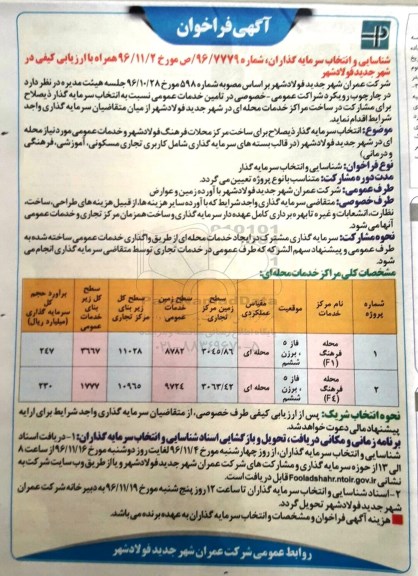 آگهی فراخوان
شناسایی و انتخاب سرمایه گذاران، شماره ۹۶/۷۷۷۹/ص مورخ ۹۶/۱۱/۲ همراه با ارزیابی کیفی در
شهر جدید فولادشهر
شرکت عمران شهر جدید فولادشهر بر اساس مصوبه شماره ۵۹۸ مورخ ۹۶/۱۰/۲۸ جلسه هیئت مدیره در نظر دارد
در چارچوب رویکرد شرکت عمومی - خصوصی در تامین خدمات عمومی نسبت به انتخاب سرمایه گذار ذیصلاح
برای مشارکت در ساخت مراکز خدمات محله ای در شهر جدید فولادشهر از میان متقاضیان سرمایه گذاری واجد
شرایط اقدام نماید.
موضوع: انتخاب سرمایه گذار ذیصلاح برای ساخت مرکز محلات فرهنگ فولادشهر و خدمات عمومی مورد نیاز محله
ای شهر جدید فولادشهر (در قالب بسته های سرمایه گذاری شامل کاربری تجاری مسکونی، آموزشی، فرهنگی
و درمانی)
نوع فراخوان: شناسایی و انتخاب سرمایه گذار
مدت دوره مشارکت: متناسب با نوع پروژه تعیین می گردد.
طرف عمومی: شرکت عمران شهر جدید فولادشهر با آورده زمین و عوارض
طرف خصوصی: متقاضی سرمایه گذاری واجد شرایط که با آورده سایر هزینه ها از قبیل هزینه های طراحی، ساخت،
نظارت، انشعابات و غیره تا بهره برداری کامل عهده دار سرمایه گذاری و ساخت همزمان مرکز تجاری و خدمات عمومی
آنها می شود.
نحوه مشارکت: سرمایه گذاری مشترک در ایجاد خدمات محله ای از طریق واگذاری خدمات عمومی ساخته شده به
طرف عمومی و پیشنهاد سهم الشرکه که طرف عمومی در خدمات تجاری توسط متقاضی سرمایه گذاری انجام می
شود.
مشخصات کلی مراکز خدمات محله ای:
شماره پروژه | نام مرکز خدمات | موقعیت | مقیاس عملکردی | سطح زمین مرکز تجاری | سطح زمین خدمات عمومی | سطح کل زیر بنای مرکز تجاری | سطح کل زیر بنای خدمات عمومی | برآورد حجم کل سرمایه گذاری (میلیارد ریال)
۱ | محله فرهنگ (F۱) | فاز ۵، برزن ششم | محله ای | ۳۰۴۵/۸۶ | ۸۷۸۲ | ۱۱۰۲۸ | ۳۶۶۷ | ۲۴۷
۲ | محله فرهنگ (F۴) | فاز ۵، برزن ششم | محله ای | ۳۰۶۳/۴۲ | ۹۷۲۴ | ۱۰۹۶۵ | ۱۷۷۷ | ۲۳۰
نحوه انتخاب شریک: پس از ارزیابی کیفی طرف خصوصی، از متقاضیان سرمایه گذاری واجد شرایط برای ارایه
پیشنهاد مالی دعوت خواهد شد.
برنامه زمانی و مکانی دریافت، تحویل و بازگشایی اسناد شناسایی و انتخاب سرمایه گذاران: ۱- دریافت اسناد
شناسایی و انتخاب سرمایه گذاران، از روز چهارشنبه مورخ ۹۶/۱۱/۴ لغایت روز دوشنبه مورخ ۹۶/۱۱/۱۶ از ساعت ۸
الی ۱۳ از حوزه سرمایه گذاری و مشارکت های شرکت عمران شهر جدید فولادشهر و یا از طریق وب سایت شرکت به
نشانی Fooladshahr.ntoir.gov.ir قابل دریافت است.
۲- اسناد شناسایی و انتخاب سرمایه گذاران تا ساعت ۱۲ روز پنج شنبه مورخ ۹۶/۱۱/۱۹ به دبیرخانه شرکت عمران
شهر جدید فولادشهر تحویل گردد.
هزینه آگهی فراخوان و مشخصات و انتخاب سرمایه گذاران به عهده برنده می باشد.
روابط عمومی شرکت عمران شهر جدید فولادشهر